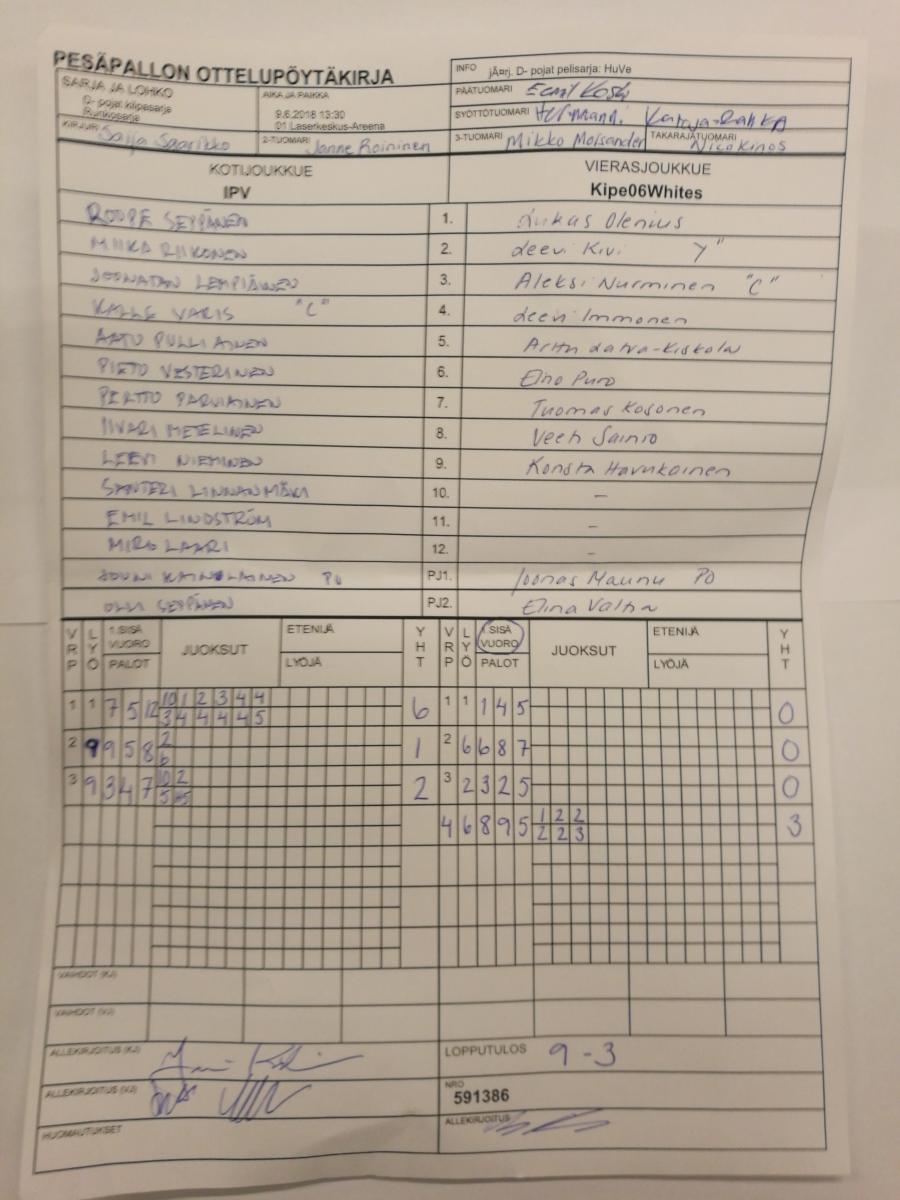 PESÄPALLON OTTELUPÖYTÄKIRJA
INFO jÃ¤rj. D- pojat pelisarja: HuVe
SARJA JA LOHKO
D- pojat kilpasarja
Runkosarja
AIKA JA PAIKKA
9.6.2018 13:30
01 Laserkeskus-Areena
PÄÄTUOMARI
SYÖTTÖTUOMARI
KIRJURI Saija Saarikko
2-TUOMARI Janne Roininen
3-TUOMARI Mikko Moisander
TAKARAJATUOMARI Nico Kinos
KOTIJOUKKUE
IPV
VIERASJOUKKUE
Kipe06Whites
ROOPE SEPPÄNEN 1. Lukas Olenius
MIIKA RIIKONEN 2. Leevi Kivi
JOONATAN LEMPIÄINEN 3. Aleksi Nurminen "C"
KALLE VARIS "C" 4. Leevi Immonen
AATU PULLIAINEN 5. Arttu Latva-Kiskola
VESTERINEN 6. Eino Puro
PERTTU PARVIAINEN 7. Tuomas Kosonen
IIVARI METELINEN 8. Veeti Sainio
LEEVI NIEMINEN 9. Konsta Havukainen
SANTERI LINNANMÄKI 10. –
EMIL LINDSTRÖM 11. –
MIRO LAARI 12. –
JOUNI KAINULAINEN PJ1. Joonas Maunu PO
OLLI SEPPÄNEN PJ2. Elina Valtia
VRP LYÖ 1.SISÄ VUORO PALOT JUOKSUT ETENIJÄ LYÖJÄ YHT VRP LYÖ 1.SISÄ VUORO PALOT JUOKSUT ETENIJÄ LYÖJÄ YHT
1 1 7 5 12 10 1 2 3 4 4 6 1 1 1 4 5 0
3 4 4 4 4 5
2 9 9 5 8 2 1 2 6 6 8 7 0
6
3 9 3 4 7 10 2 2 3 2 3 2 5 0
5
4 6 8 9 5 1 2 2 3
2 2 3
VAIHDOT (KJ)
VAIHDOT (VJ)
ALLEKIRJOITUS (KJ)
LOPPUTULOS 9 - 3
ALLEKIRJOITUS (VJ)
NRO
591386
HUOMAUTUKSET
ALLEKIRJOITUS